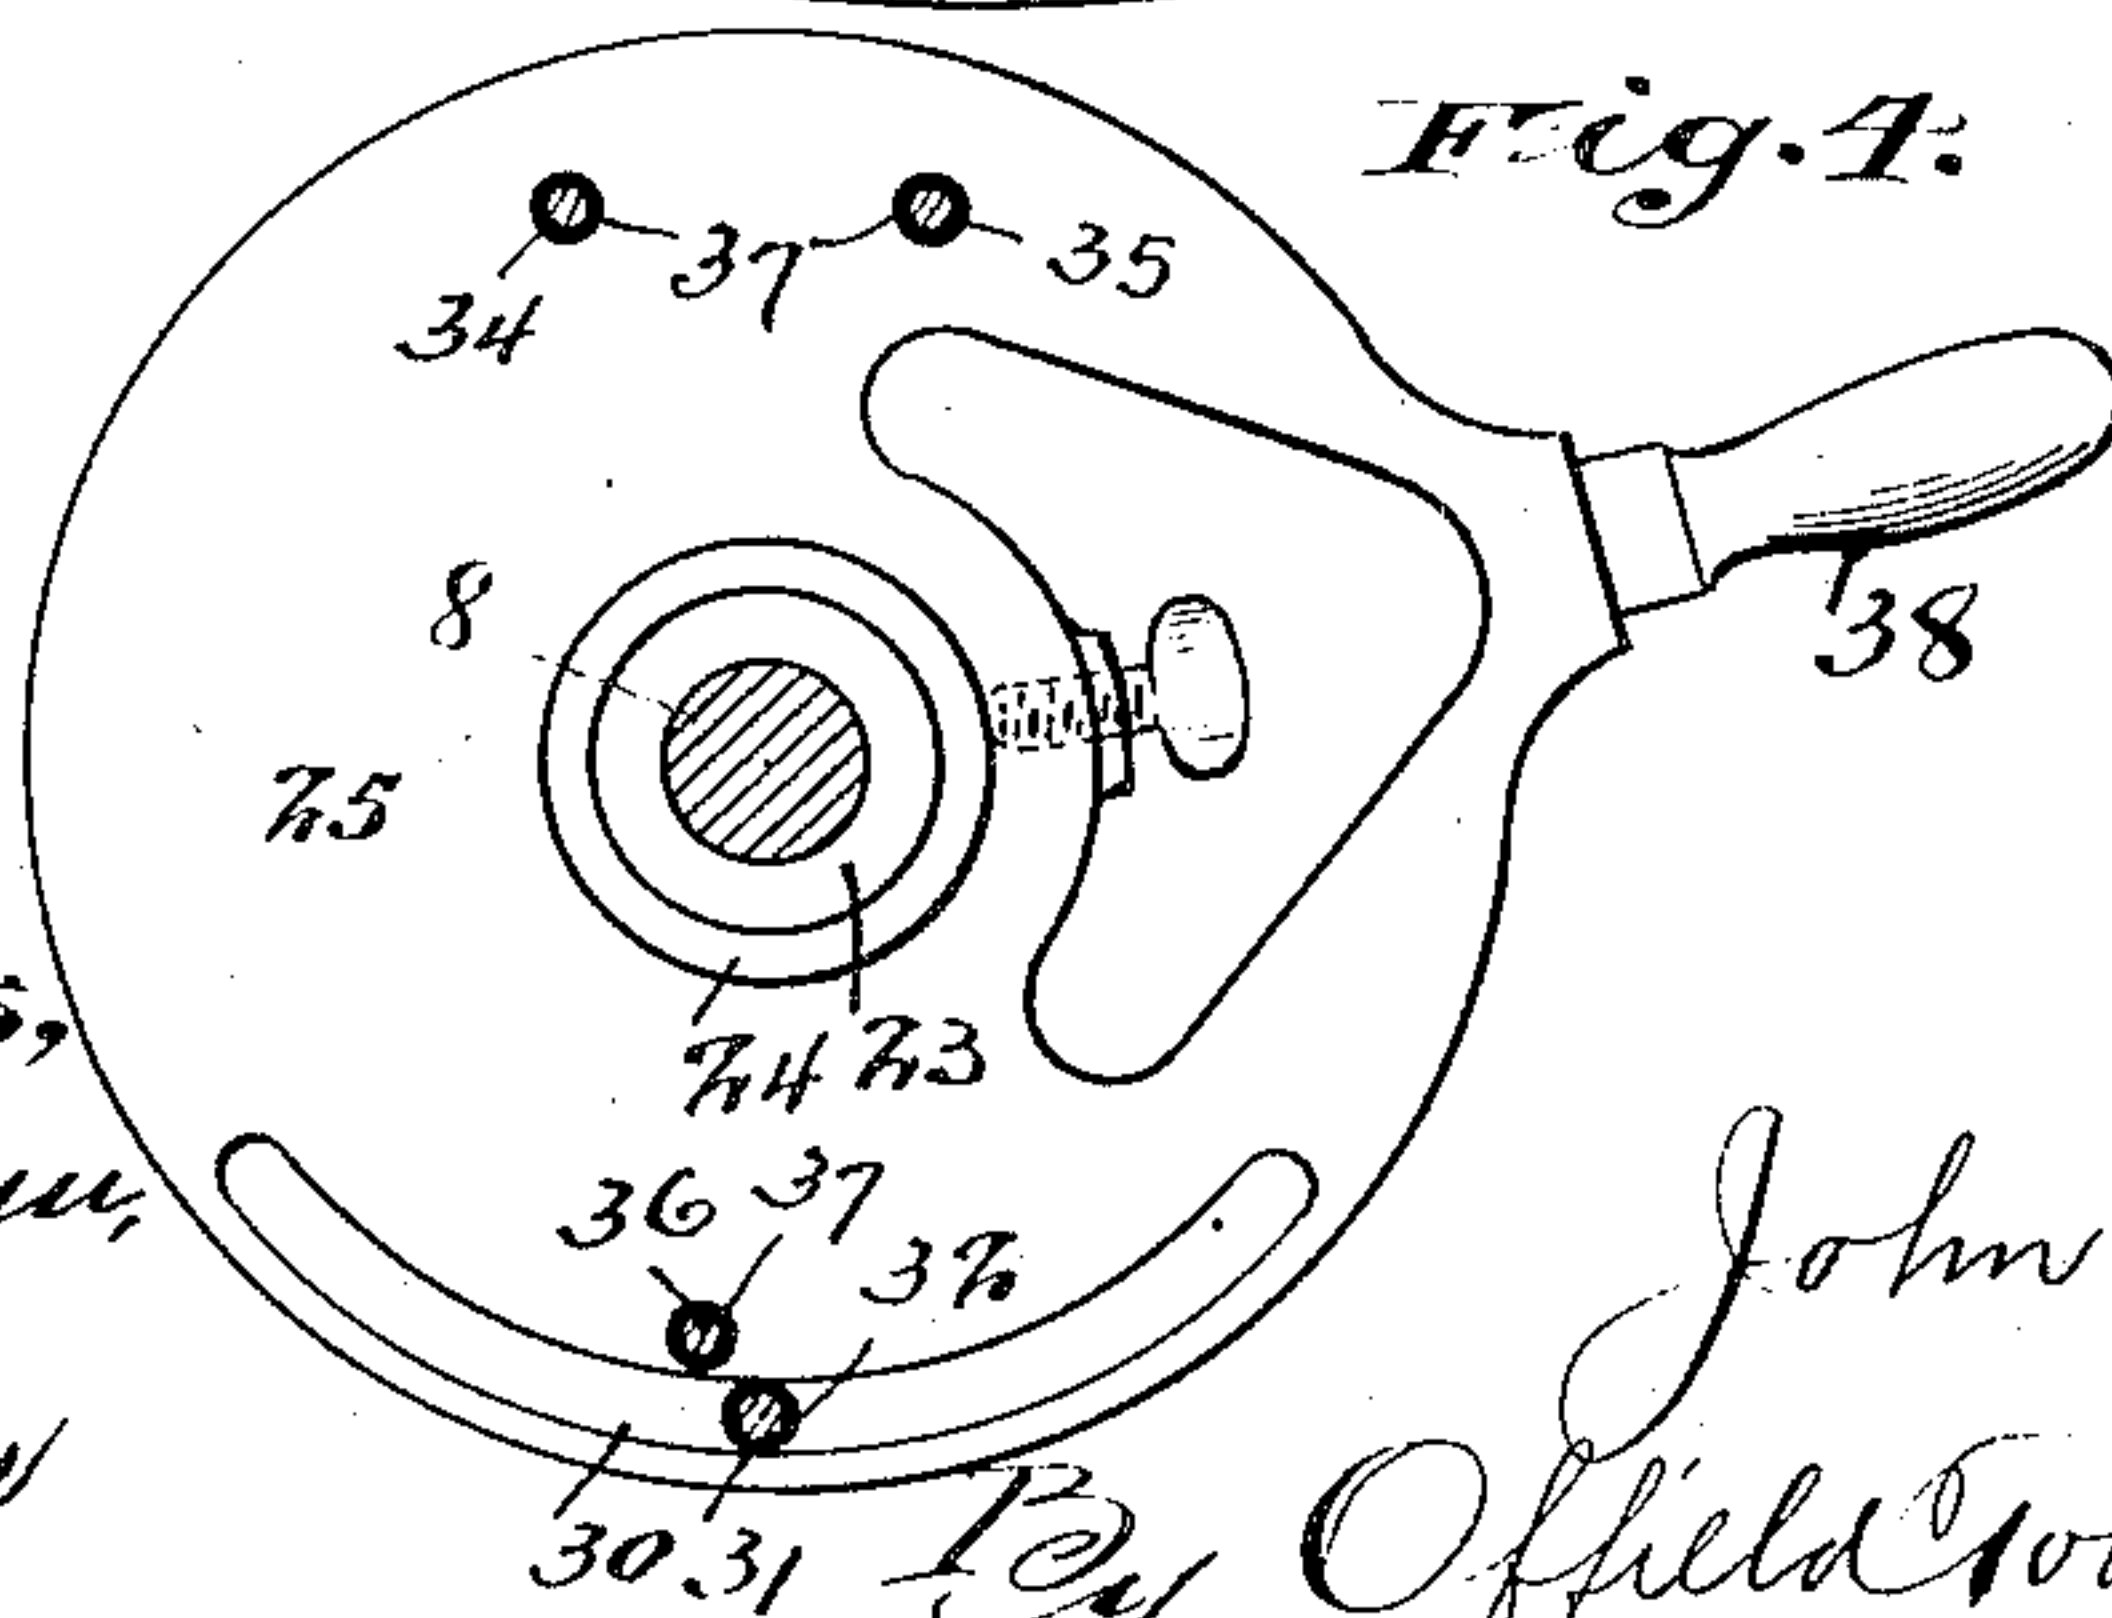 Fig. 4.
37
35
34
38
8
25
24 23
36 37
32
30 31
John
By Offield